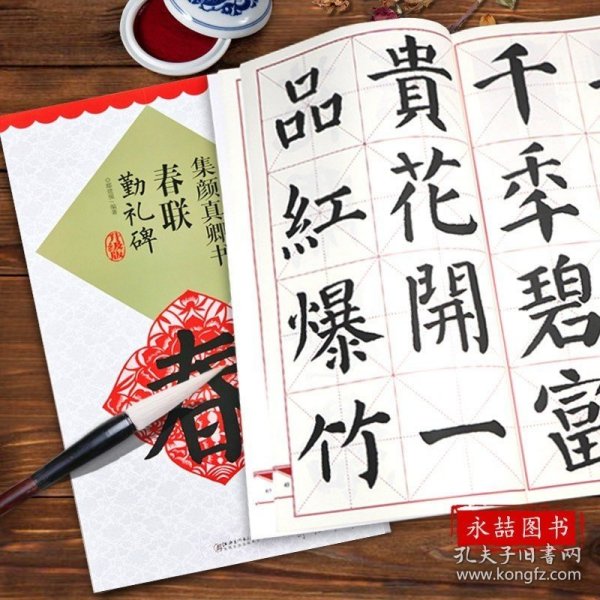 集颜真卿书
春联
勤礼碑
升级版
春
千秊碧富
貴花開一
品紅爆竹
永喆图书
孔夫子旧书网
www.kongfz.com